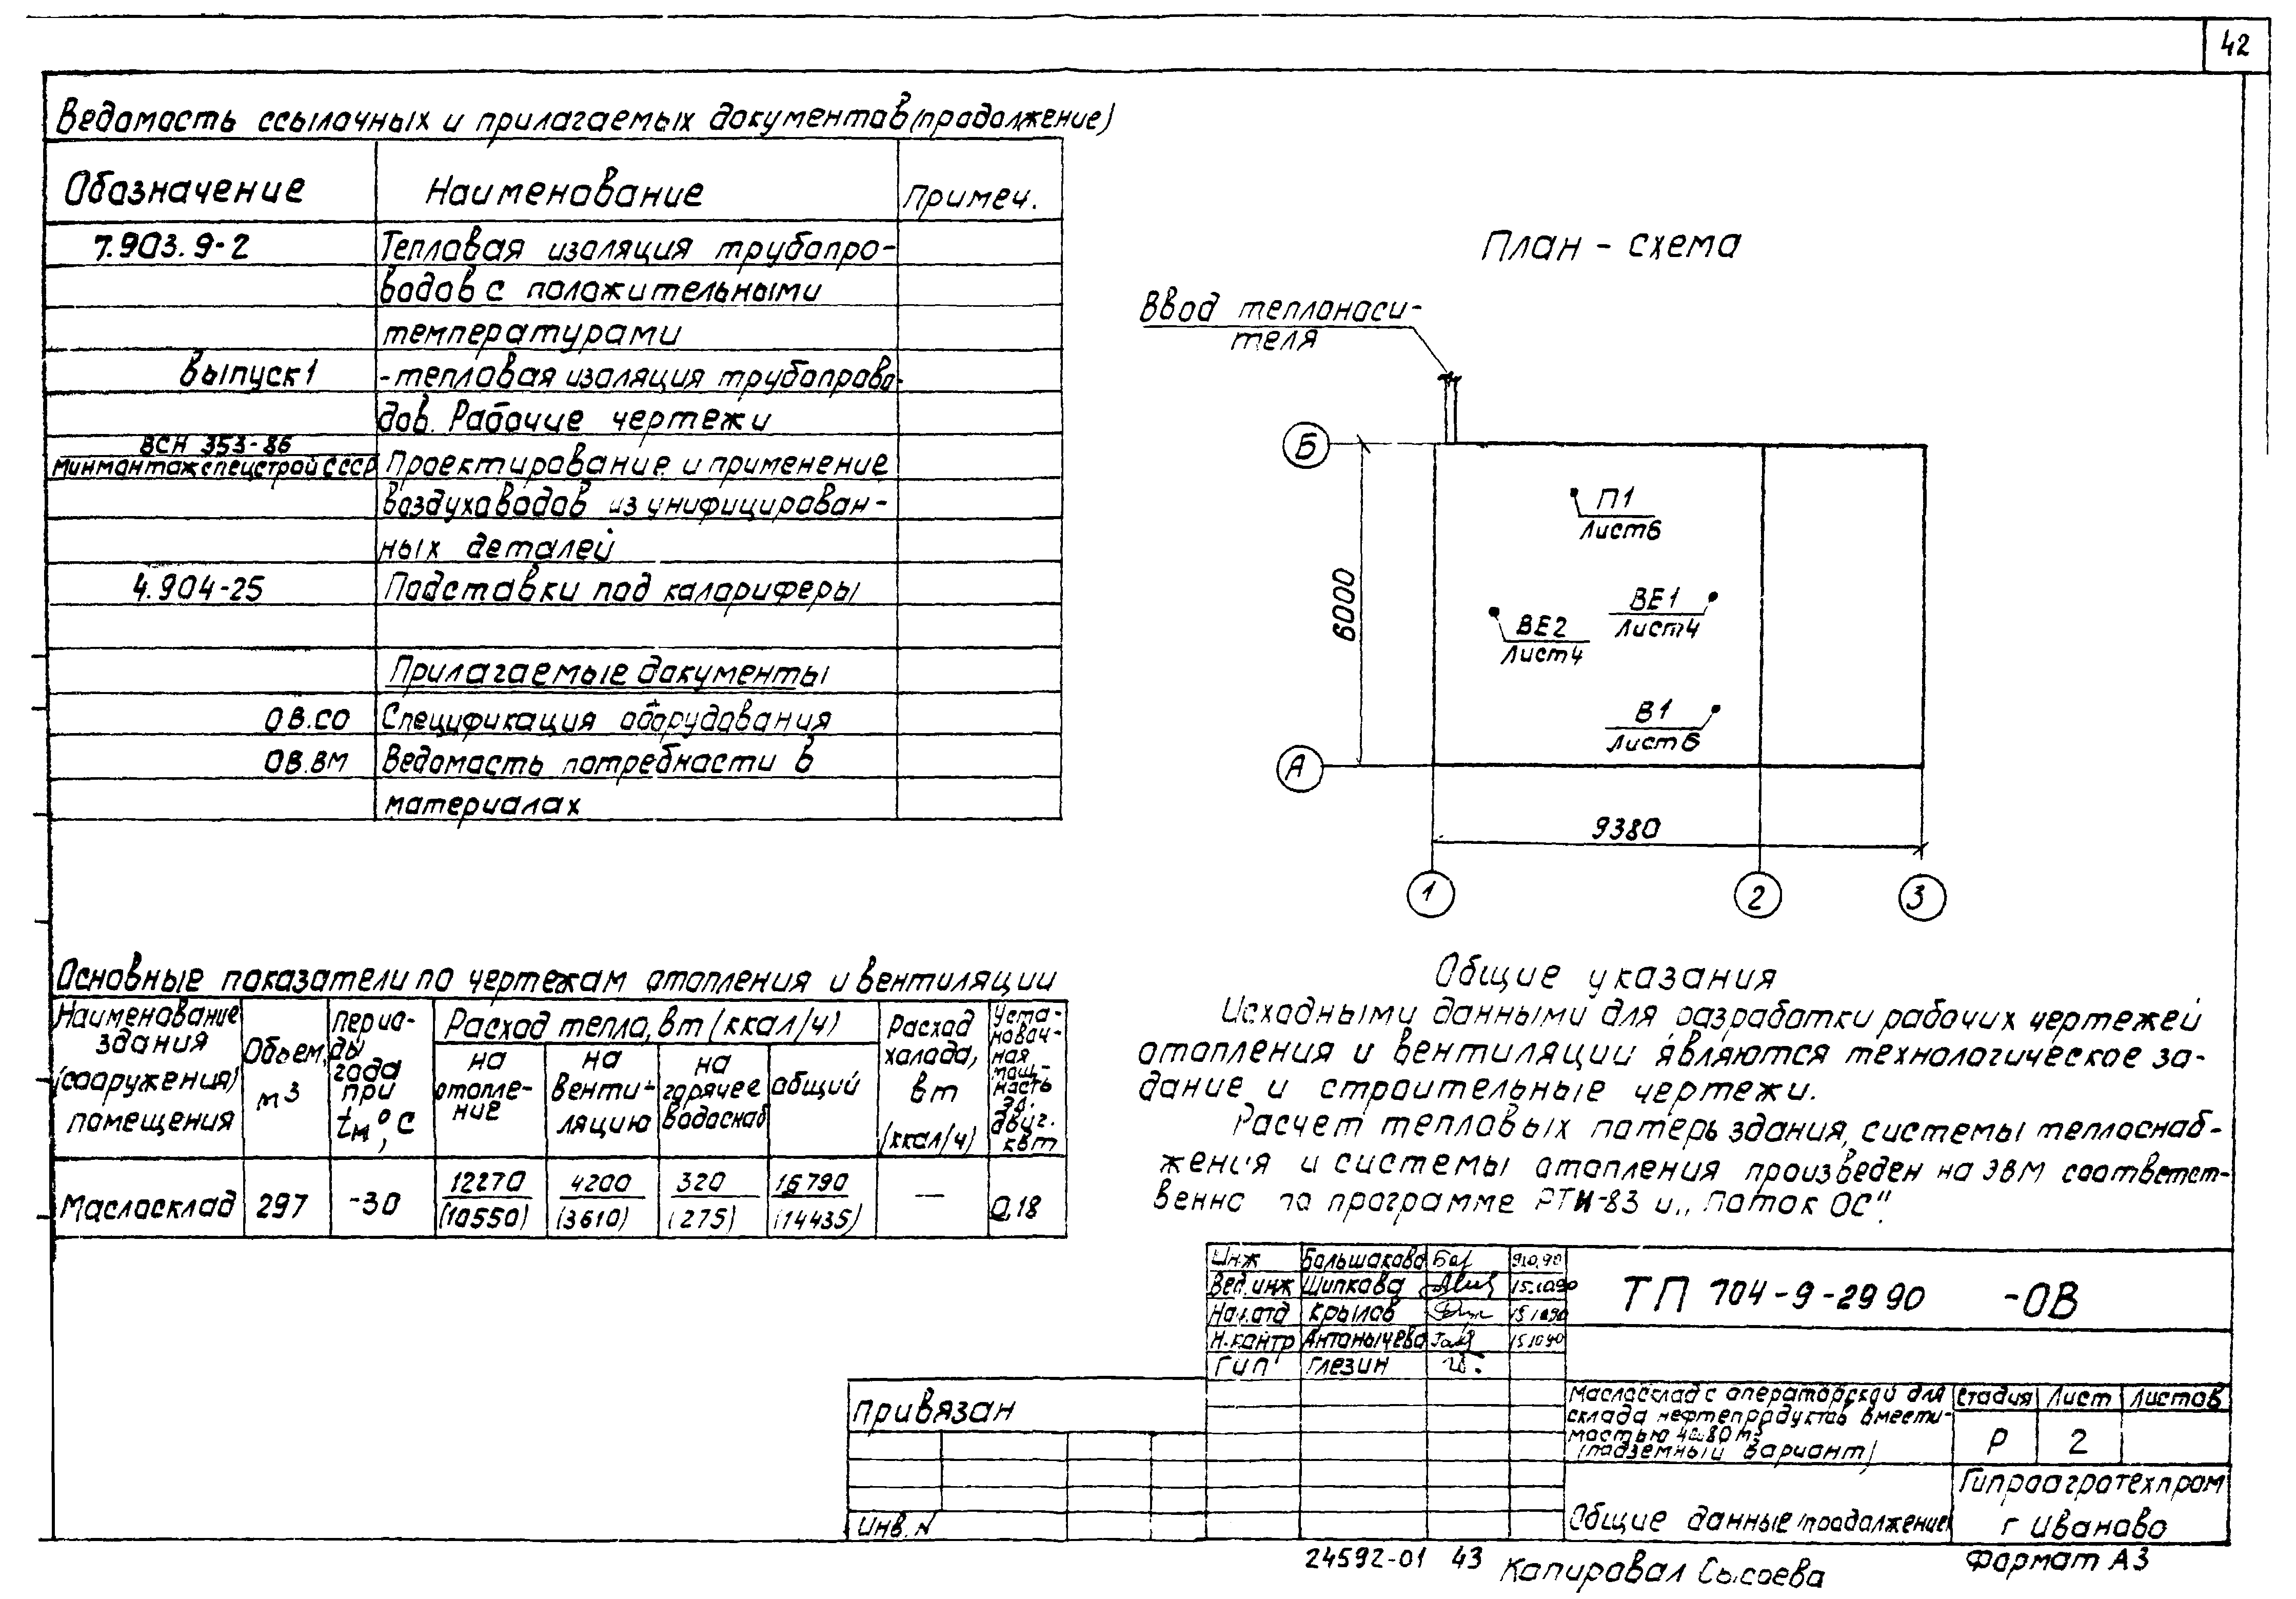 42
Ведомость ссылочных и прилагаемых документов (продолжение)
Обозначение Наименование Примеч.
7.903.9-2 Тепловая изоляция трубопро-
водов с положительными
температурами
выпуск 1 -тепловая изоляция трубопрово-
дов. Рабочие чертежи
ВСН 353-86
Минмонтажспецстрой СССР Проектирование и применение
воздуховодов из унифицирован-
ных деталей
4.904-25 Подставки под калориферы
Прилагаемые документы
ОВ.СО Спецификация оборудования
ОВ.ВМ Ведомость потребности в
материалах
План - схема
Ввод теплоноси-
теля
Б
П1
Лист 6
6000
ВЕ1
Лист 4
ВЕ2
Лист 4
В1
Лист 6
А
9380
1 2 3
Основные показатели по чертежам отопления и вентиляции
Наименование
здания
(сооружения)
помещения
Объем,
м3
Перио-
ды
года
при
tм°, С
Расход тепла, вт (ккал/ч)
на
отопле-
ние
на
венти-
ляцию
на
горячее
водоснаб
общий
Расход
холода,
вт
(ккал/ч)
Уста-
новоч-
ная
мощ-
ность
эл.
двиг.
квт
Маслосклад 297 -30 12270 4200 320 16790 — 0,18
(10550) (3610) (275) (14435)
Общие указания
Исходными данными для разработки рабочих чертежей
отопления и вентиляции являются технологическое за-
дание и строительные чертежи.
Расчет тепловых потерь здания, системы теплоснаб-
жения и системы отопления произведен на ЭВМ соответст-
венно по программе РТИ-83 и „Поток ОС".
Инж Большакова
Вед.инж Шипкова 15.10.90
Нач.отд Крылов 15.10.90
Н.контр Антонычева 15.10.90
ГИП Глезин
ТП 704-9-29 90 -ОВ
Привязан
Инв. N
Маслосклад с операторской для
склада нефтепродуктов вмести-
мостью м3
(надземный вариант)
Стадия Лист Листов
Р 2
Общие данные (продолжение)
Гипроагротехпром
г Иваново
24592-01 43 Копировал Сысоева Формат А3